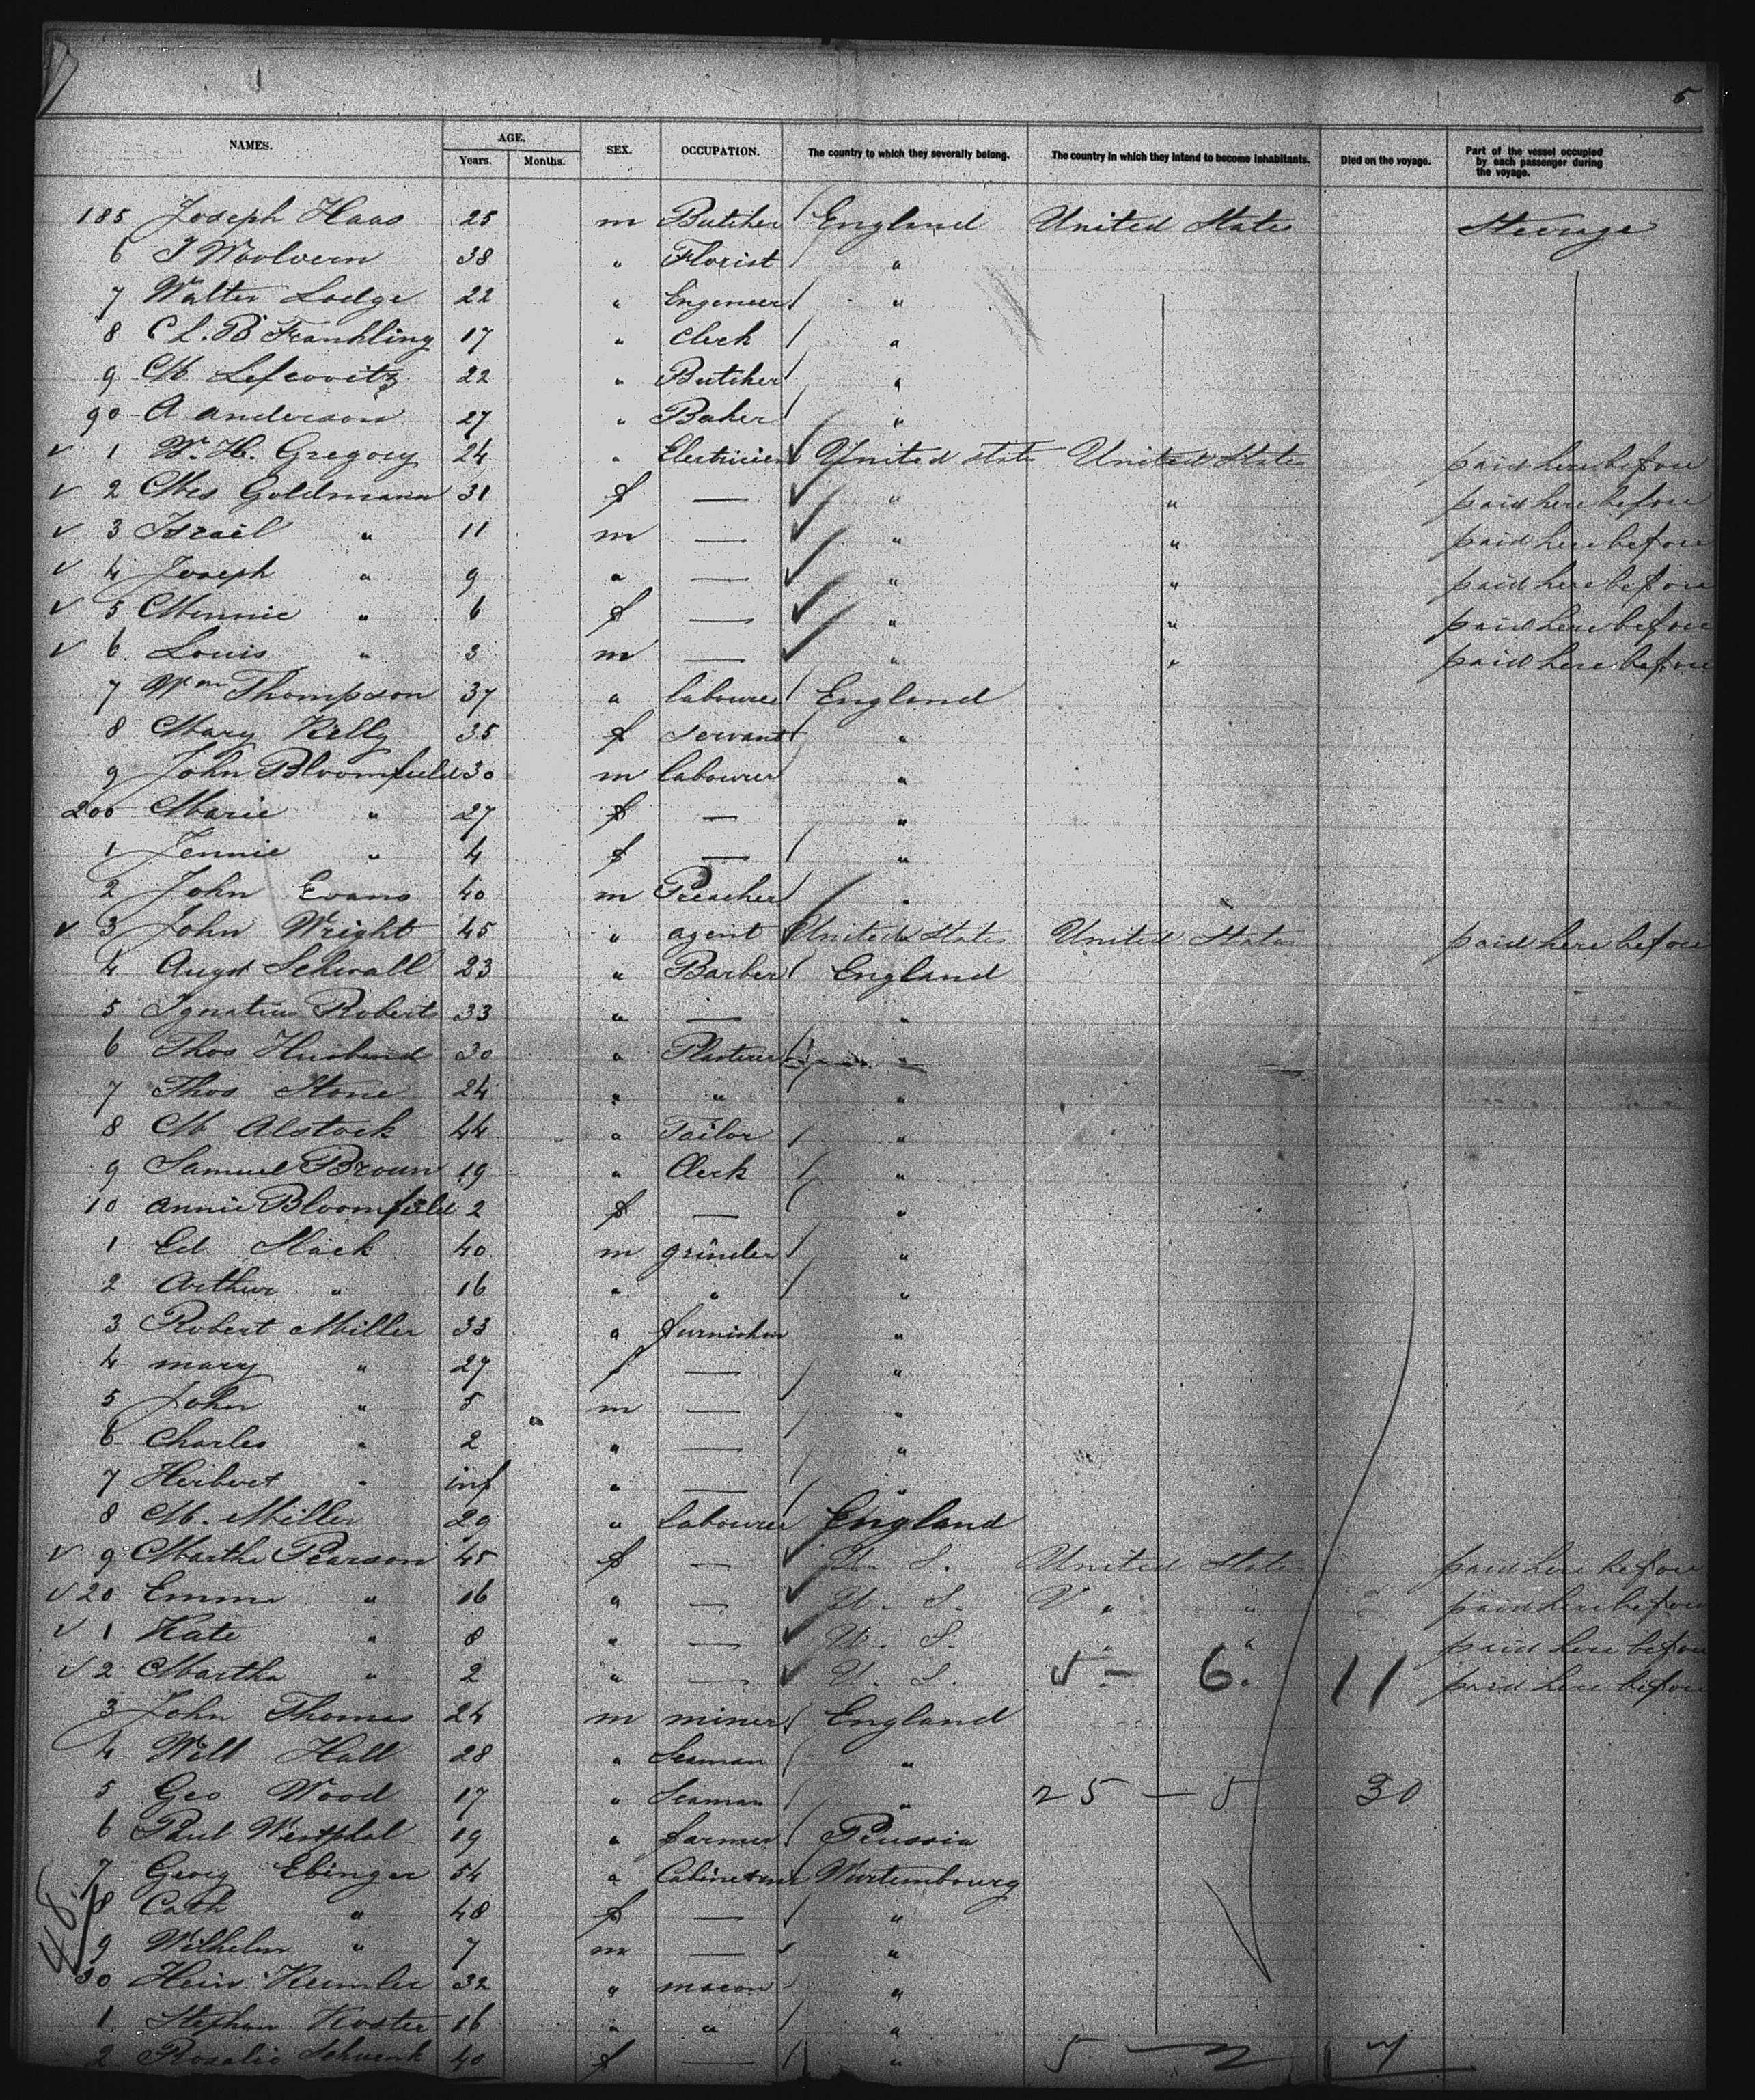 5
NAMES. AGE. SEX. OCCUPATION. The country to which they severally belong. The country in which they intend to become inhabitants. Died on the voyage. Part of the vessel occupied by each passenger during the voyage.
Years. Months.
185 Joseph Haas 25 m Butcher England United States Steerage
6 J Woolvern 38 " Florist "
7 Walter Lodge 22 " Engeneer "
8 C L. B Frankling 17 " Clerk "
9 M Lefcovitz 22 " Butcher "
90 A Anderson 27 " Baker "
1 W. H. Gregory 24 " Electricien United States United States paid here before
2 Mrs Goldmann 31 f — " " paid here before
3 Israel " 11 m — " " paid here before
4 Joseph " 9 " — " " paid here before
5 Minnie " 6 f — " " paid here before
6 Louis " 3 m — " " paid here before
7 Wm Thompson 37 " labourer England
8 Mary Kelly 35 f servant "
9 John Bloomfield 30 m labourer "
200 Marie " 27 f — "
1 Jennie " 4 f — "
2 John Evans 40 m Preacher "
3 John Wright 45 " agent United States United States paid here before
4 Augst Schwall 23 " Barber England
5 Ignatius Roberts 33 " — "
6 Thos Husband 30 " Plasterer "
7 Thos Stone 24 " " "
8 M Alstock 44 " Tailor "
9 Samuel Broun 19 " Clerk "
10 Annie Bloomfield 2 f — "
1 Ed. Slack 40 m grinder "
2 Arthur " 16 " " "
3 Robert Miller 33 " furnisher "
4 mary " 27 f — "
5 John " 5 m — "
6 Charles " 2 " — "
7 Herbert " inf " — "
8 M. Miller 29 " labourer England
9 Martha Pearson 45 f — U. S. United States paid here before
20 Emma " 16 " — U. S. " " paid here before
1 Kate " 8 " — U. S. " " paid here before
2 Martha " 2 " — U. S. 5 - 6. 11 paid here before
3 John Thomas 24 m miner England
4 Will Hall 28 " Seaman "
5 Geo Wood 17 " Seaman " 25 — 5 30
6 Paul Westphal 19 " farmer Prussia
7 Georg Ebinger 54 " Wurtembourg
8 Cath " 48 f — "
9 Wilhelm " 7 m — "
30 Hein Kemler 32 " macon "
1 Stephan Koster 16 " " "
2 Rosalie Schwenk 40 f — " 5 — 2 7
48